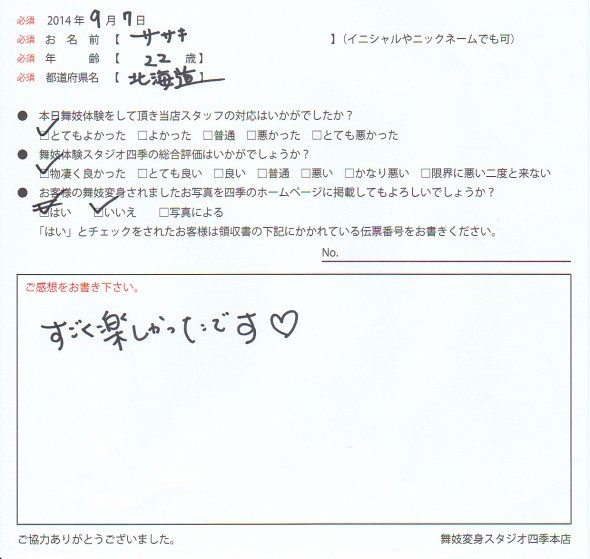 必須 2014年 9月 7日
必須 お名前【 ササキ 】(イニシャルやニックネームでも可)
必須 年齢【 22 歳】
必須 都道府県名【 北海道 】
● 本日舞妓体験をして頂き当店スタッフの対応はいかがでしたか?
□とてもよかった □よかった □普通 □悪かった □とても悪かった
● 舞妓体験スタジオ四季の総合評価はいかがでしょうか?
□物凄く良かった □とても良い □良い □普通 □悪い □かなり悪い □限界に悪い二度と来ない
● お客様の舞妓変身されましたお写真を四季のホームページに掲載してもよろしいでしょうか?
□はい □いいえ □写真による
「はい」とチェックをされたお客様は領収書の下記にかかれている伝票番号をお書きください。
No.
ご感想をお書き下さい。
すごく楽しかったです♡
ご協力ありがとうございました。 舞妓変身スタジオ四季本店